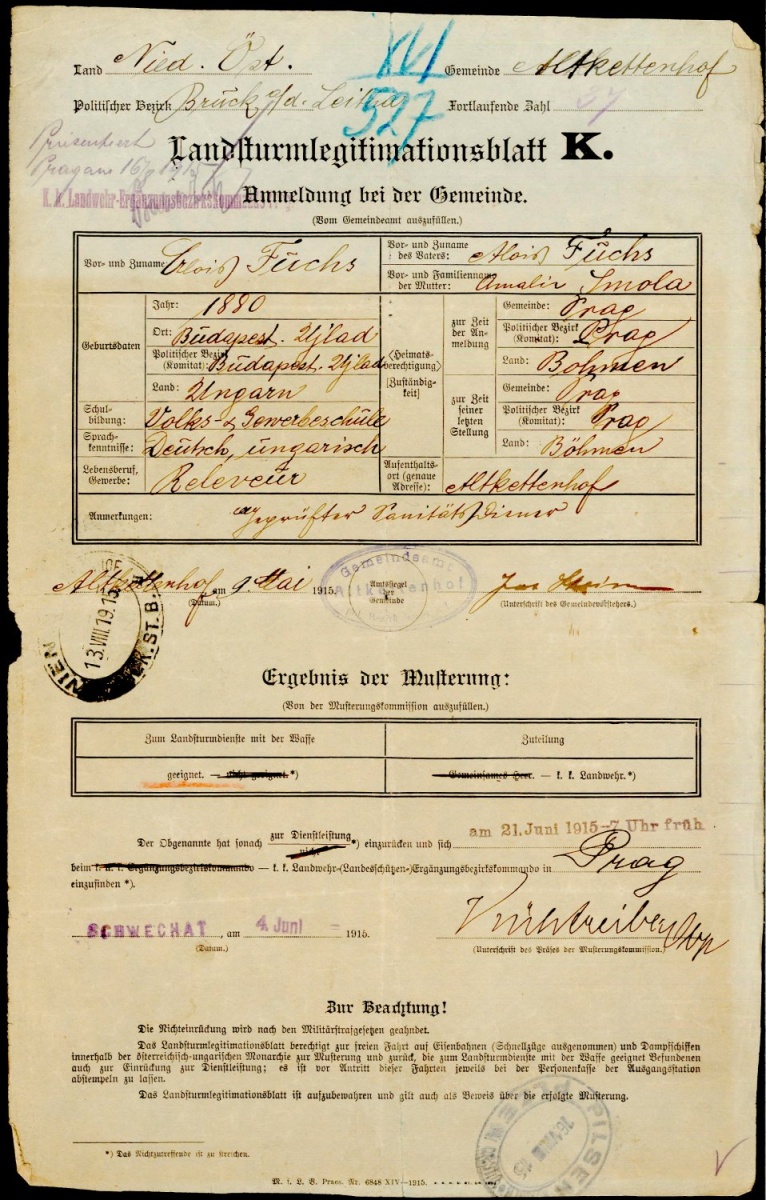 Land Nied. Öst. XVI Gemeinde Altkettenhof
Politischer Bezirk Brück a/d. Leitha 527 Fortlaufende Zahl 37
Präsentiert
Prag am
Landsturmlegitimationsblatt K.
K. k. Landwehr-Ergänzungsbezirkskommando
Anmeldung bei der Gemeinde.
(Vom Gemeindeamt auszufüllen.)
Vor- und Zuname Alois Fuchs
Vor- und Zuname des Vaters: Alois Fuchs
Vor- und Familienname der Mutter: Amalie Smola
Geburtsdaten
Jahr: 1880
Ort: Budapest. Ujlad
Politischer Bezirk (Komitat): Budapest. Ujlad
Land: Ungarn
Schulbildung: Volks- & Gewerbeschule
Sprachkenntnisse: Deutsch, ungarisch
Lebensberuf, Gewerbe: Releveur
Heimatsberechtigung (Zuständigkeit)
zur Zeit der Anmeldung
Gemeinde: Prag
Politischer Bezirk (Komitat): Prag
Land: Böhmen
zur Zeit seiner letzten Stellung
Gemeinde: Prag
Politischer Bezirk (Komitat): Prag
Land: Böhmen
Aufenthaltsort (genaue Adresse): Altkettenhof
Anmerkungen: geprüfter Sanitäts Diener
Altkettenhof am 9. Mai 1915.
(Datum.)
Gemeindeamt
Altkettenhof
Amtssiegel der Gemeinde
(Unterschrift des Gemeindevorstehers.)
WIEN
13.VIII.19.15
K.K.ST.B.
Ergebnis der Musterung:
(Von der Musterungskommission auszufüllen.)
Zum Landsturmdienste mit der Waffe
Zuteilung
geeignet. — nicht geeignet.*)
Gemeinsames Heer. — k. k. Landwehr.*)
Der Obgenannte hat sonach zur Dienstleistung / nicht *) einzurücken und sich am 21. Juni 1915-7 Uhr früh
beim k. u. k. Ergänzungsbezirkskommando — k. k. Landwehr-(Landesschützen-)Ergänzungsbezirkskommando in Prag
einzufinden *).
SCHWECHAT, am 4. Juni 1915.
(Datum.)
(Unterschrift des Präses der Musterungskommission.)
Zur Beachtung!
Die Nichteinrückung wird nach den Militärstrafgesetzen geahndet.
Das Landsturmlegitimationsblatt berechtigt zur freien Fahrt auf Eisenbahnen (Schnellzüge ausgenommen) und Dampfschiffen
innerhalb der österreichisch-ungarischen Monarchie zur Musterung und zurück, die zum Landsturmdienste mit der Waffe geeignet Befundenen
auch zur Einrückung zur Dienstleistung; es ist vor Antritt dieser Fahrten jeweils bei der Personenkasse der Ausgangsstation
abstempeln zu lassen.
Das Landsturmlegitimationsblatt ist aufzubewahren und gilt auch als Beweis über die erfolgte Musterung.
PILSEN
PLZEŇ
*) Das Nichtzutreffende ist zu streichen.
M. f. L. V. Praes. Nr. 6848 XIV—1915.